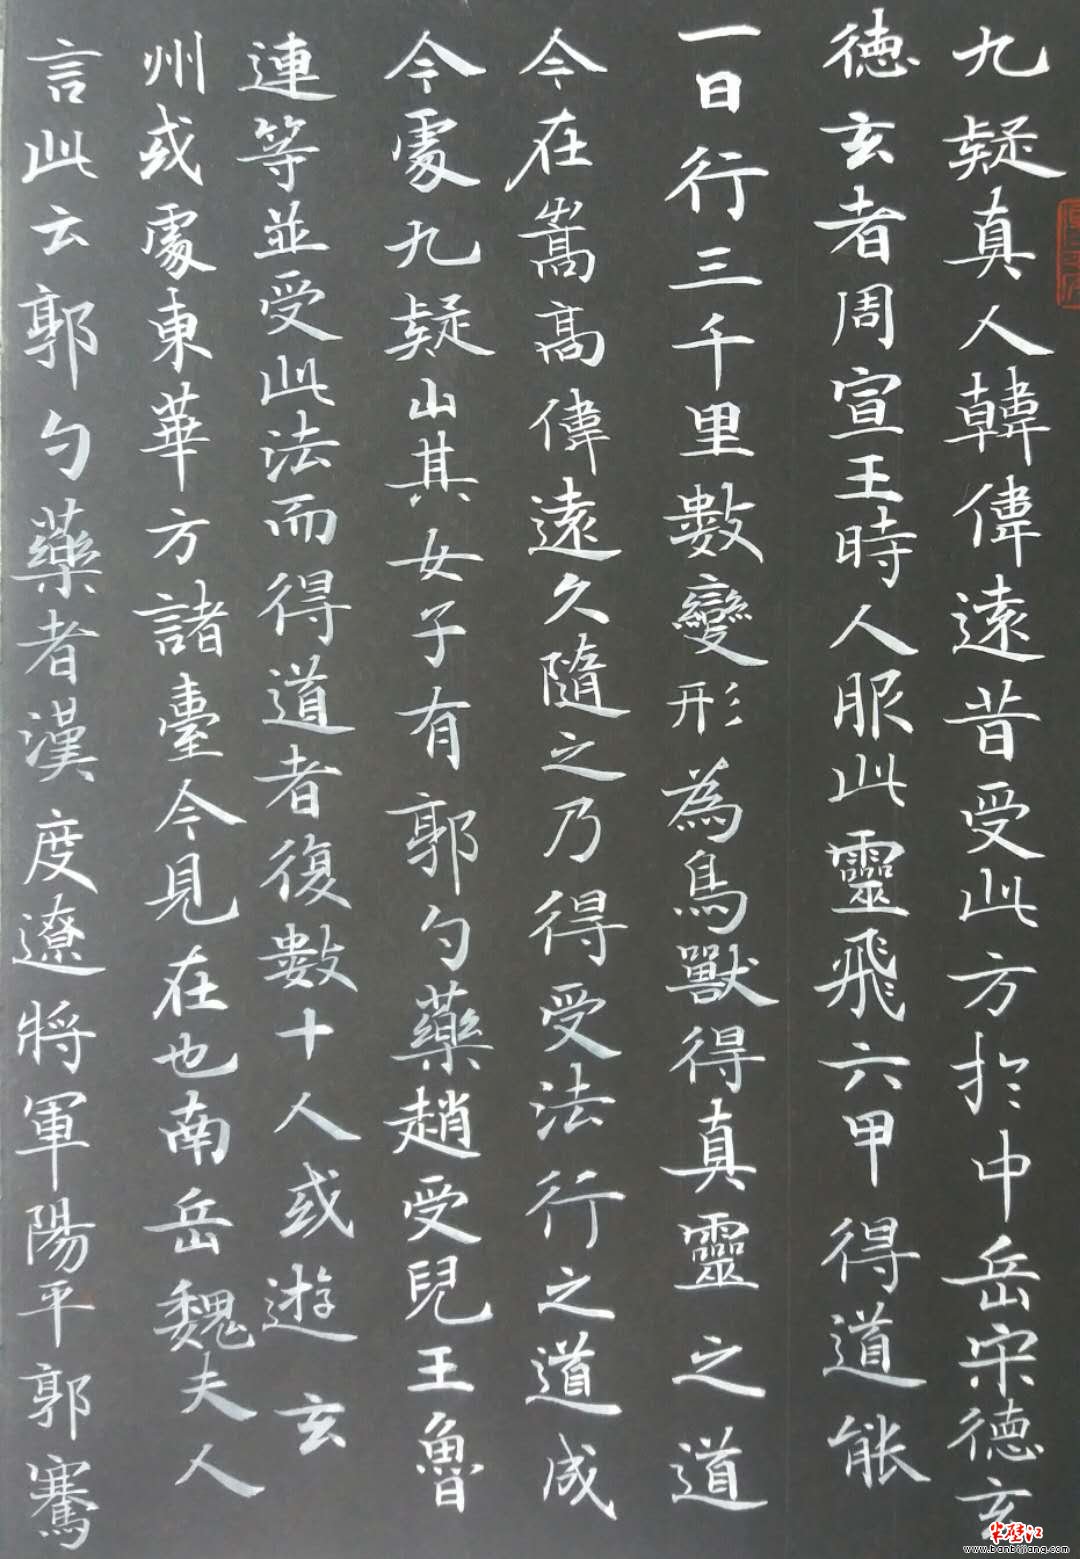 九疑真人韓偉遠昔受此方於中岳宋德玄
德玄者周宣王時人服此靈飛六甲得道能
一日行三千里數變形為鳥獸得真靈之道
今在嵩高偉遠久隨之乃得受法行之道成
今處九疑山其女子有郭勺藥趙受兒王魯
連等並受此法而得道者復數十人或遊玄
州或處東華方諸臺今見在也南岳魏夫人
言此云郭勺藥者漢度遼將軍陽平郭騫
半壁江
www.banbijiang.com